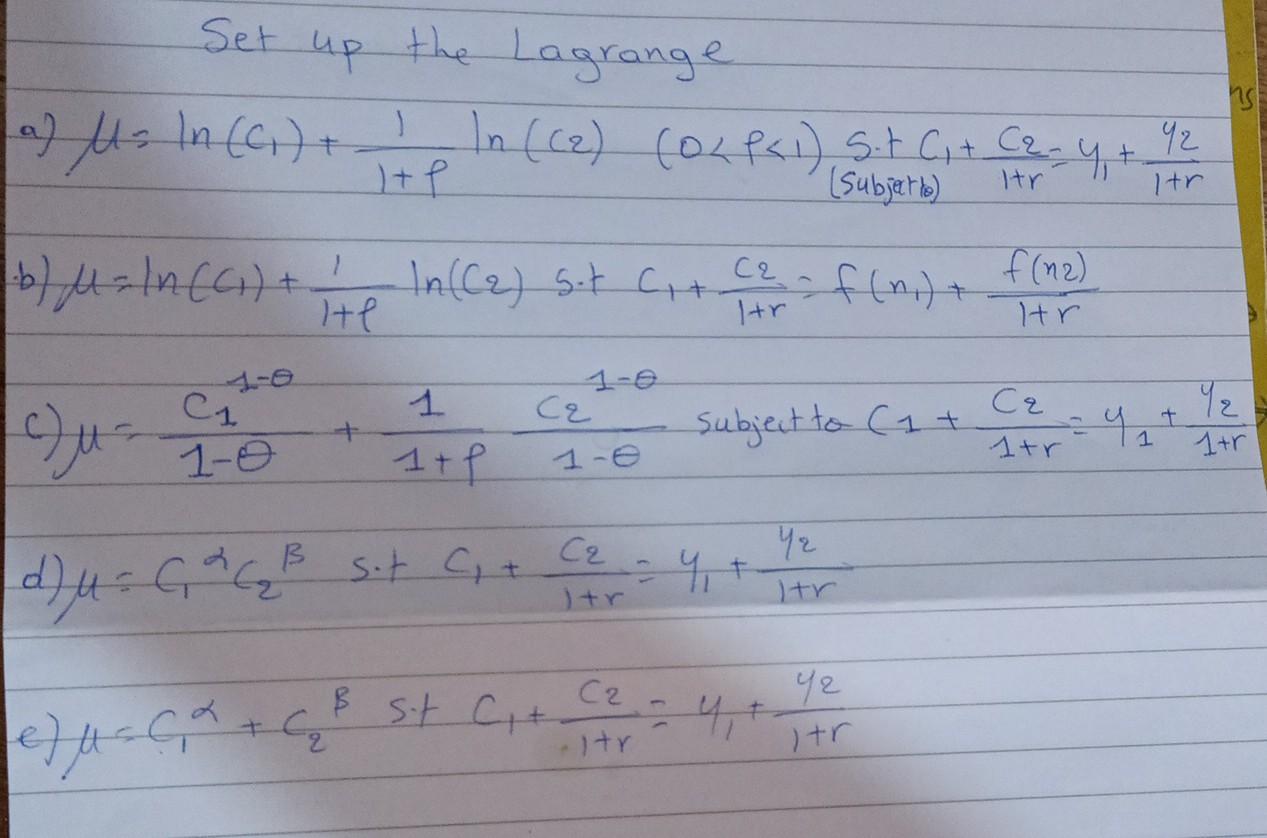 Set up the Lagrange
a) μ = ln(C₁) + 1/(1+ρ) ln(C₂) (0<ρ<1) S.t C₁ + C₂/(1+r) = y₁ + y₂/(1+r)
(Subject to)
b) μ = ln(C₁) + 1/(1+ρ) ln(C₂) S.t C₁ + C₂/(1+r) = f(n₁) + f(n₂)/(1+r)
c) μ = C₁^(1-θ)/(1-θ) + 1/(1+ρ) C₂^(1-θ)/(1-θ) subject to C₁ + C₂/(1+r) = y₁ + y₂/(1+r)
d) μ = C₁^α C₂^β s.t C₁ + C₂/(1+r) = y₁ + y₂/(1+r)
e) μ = C₁^α + C₂^β s.t C₁ + C₂/(1+r) = y₁ + y₂/(1+r)